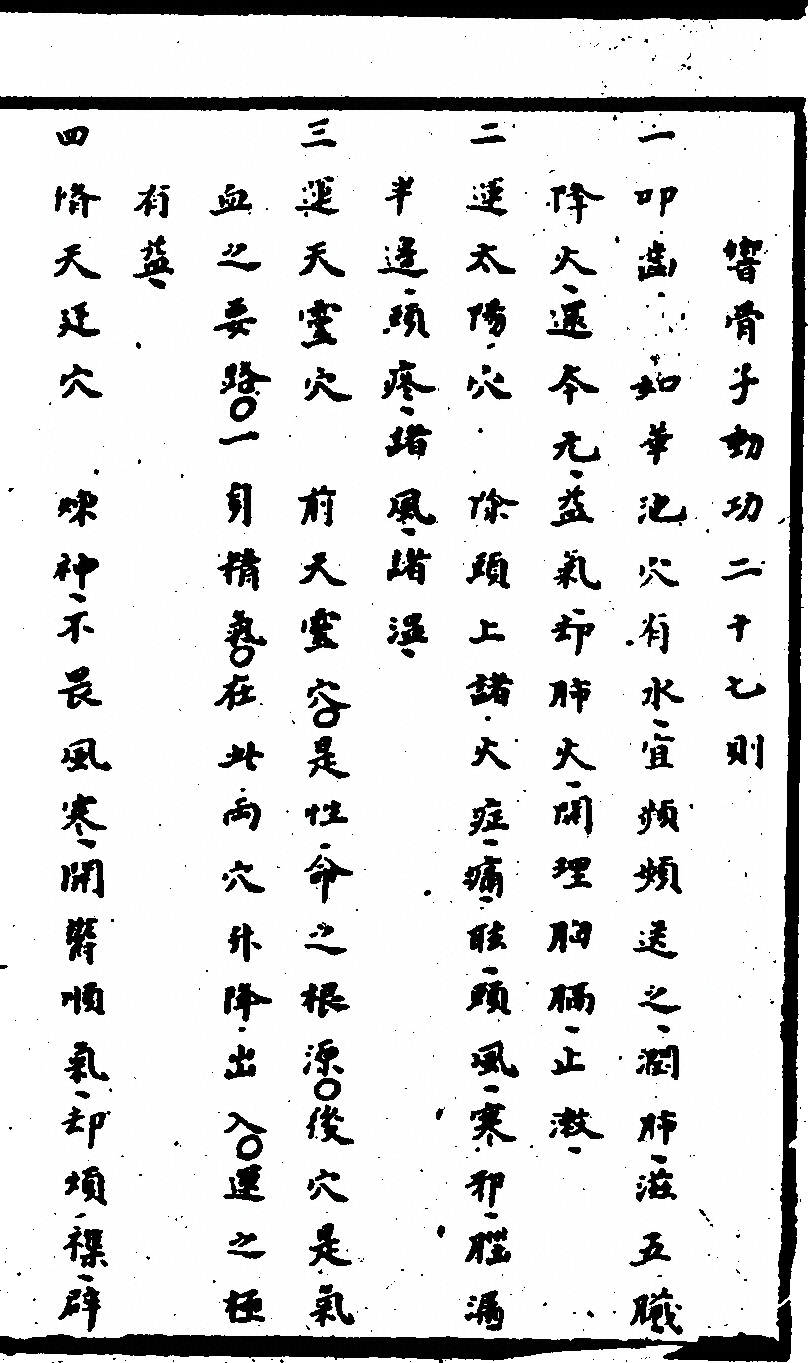 響骨子動功二十七則
一叩齒 如華池穴有水、宜頻頻送之、潤肺、滋五臟
降火、還本元、益氣、却肺火、開理胸膈、止潄、
二運太陽穴 除頭上諸火症、痛、眩、頭風、寒邪、腦漏
半邊、頭疼、諸風、諸溫、
三運天靈穴 前天靈穴○是性命之根源○後穴是氣
血之要路○一身精氣○在此兩穴升降出入○運之極
有益、
四脩天廷穴 煉神、不畏風寒、開竅順氣、却煩襍、辟